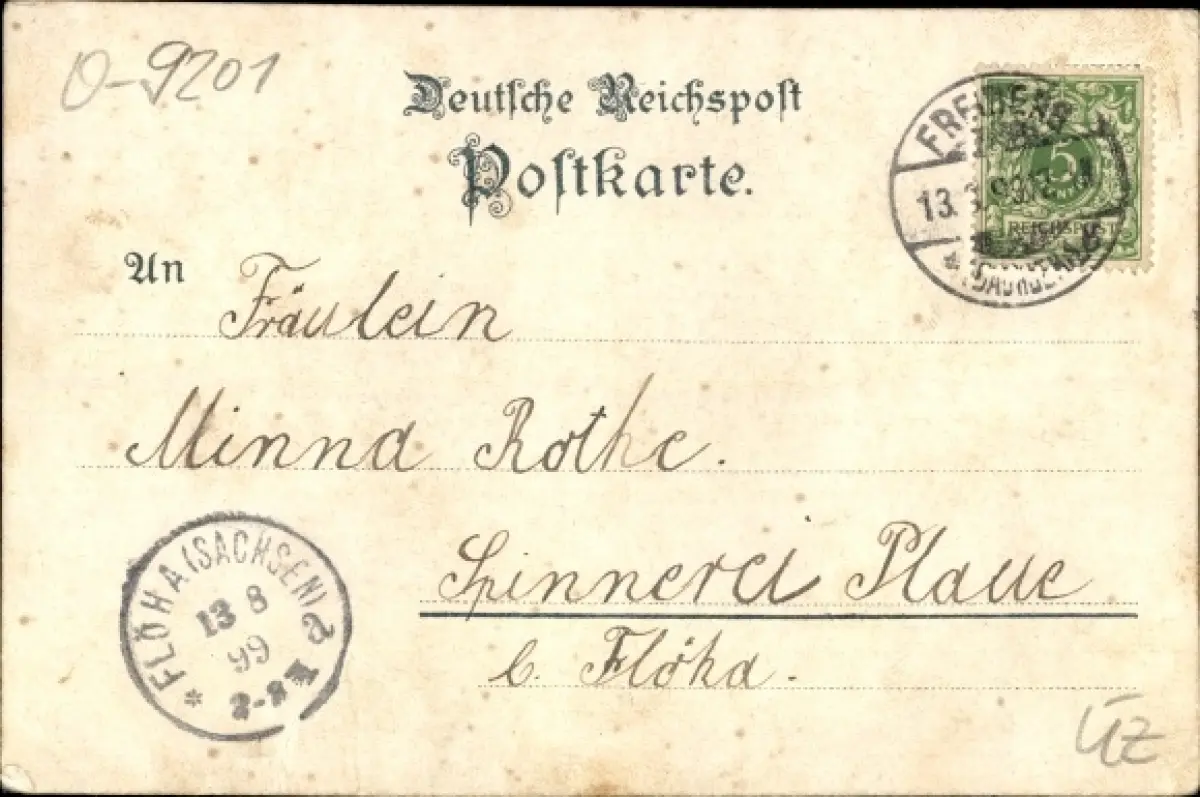 O-9201
Deutsche Reichspost
Postkarte.
5
REICHSPOST
13.
An Fräulein
Minna Rothe.
Spinnerei Plaue
b. Flöha.
* FLÖHA (SACHSEN) a
13 8
99
ÜZ